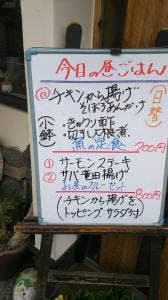 今日の昼ごはん
@チキンから揚げ
そぼろあんかけ
(日替)
(小鉢)
・きのクリ酢
・切ばし大根煮
魚の定食
700円
① サーモンステーキ
② サバ竜田揚げ
お昼のブルーセット
800円
(チキンから揚げを
トッピング サラダ付)